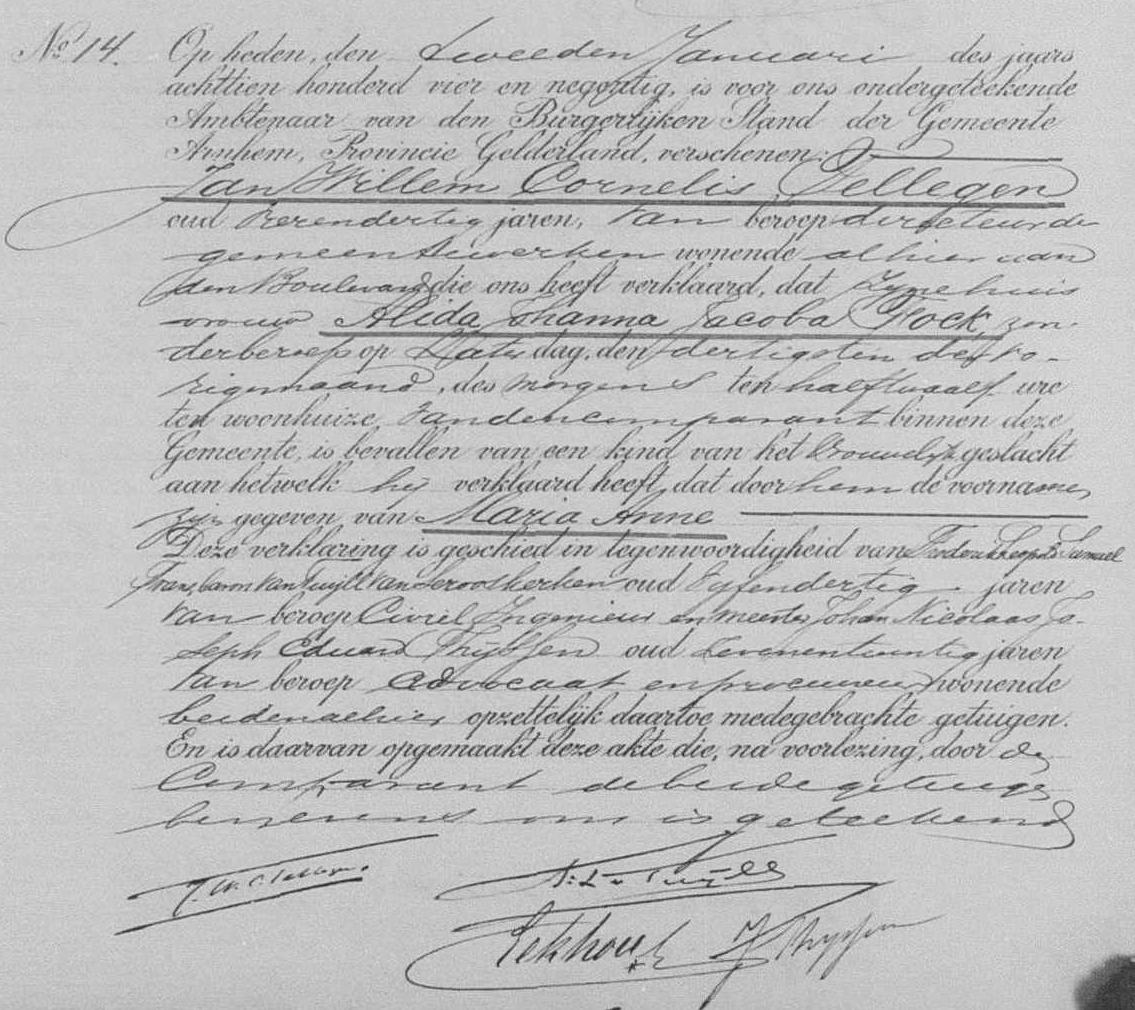 No 14. Op heden, den tweeden Januari des jaars
achttien honderd vier en negentig, is voor ons ondergeteekende
Ambtenaar van den Burgerlijken Stand der Gemeente
Arnhem, Provincie Gelderland, verschenen:
Jan Willem Cornelis Tellegen
oud vierendertig jaren, van beroep directeur der
gemeentewerken wonende alhier aan
den Boulevard die ons heeft verklaard, dat zijne huis
vrouw Alida Johanna Jacoba Fock, zon-
der beroep op Zaterdag, den dertigsten der vo-
rige maand, des morgens ten half twaalf ure
ten woonhuize, van den comparant binnen deze
Gemeente, is bevallen van een kind van het vrouwelijk geslacht
aan hetwelk hij verklaard heeft, dat door hem de voornamen
zijn gegeven van Maria Anne
Deze verklaring is geschied in tegenwoordigheid van Frederik Leopold Samuel
Frans, baron van Tuyll van Serooskerken oud vyfendertig jaren
van beroep Civiel Ingenieur en meester Johan Nicolaas Jo-
seph Eduard Thijssen oud zevenentwintig jaren
van beroep advocaat en procureur wonende
beiden alhier opzettelijk daartoe medegebrachte getuigen.
En is daarvan opgemaakt deze akte die, na voorlezing, door de
Comparant de beide getuigen
benevens ons is geteekend
J. W. C. Tellegen.
F. L. v Tuyll
Eekhout J Thyssen